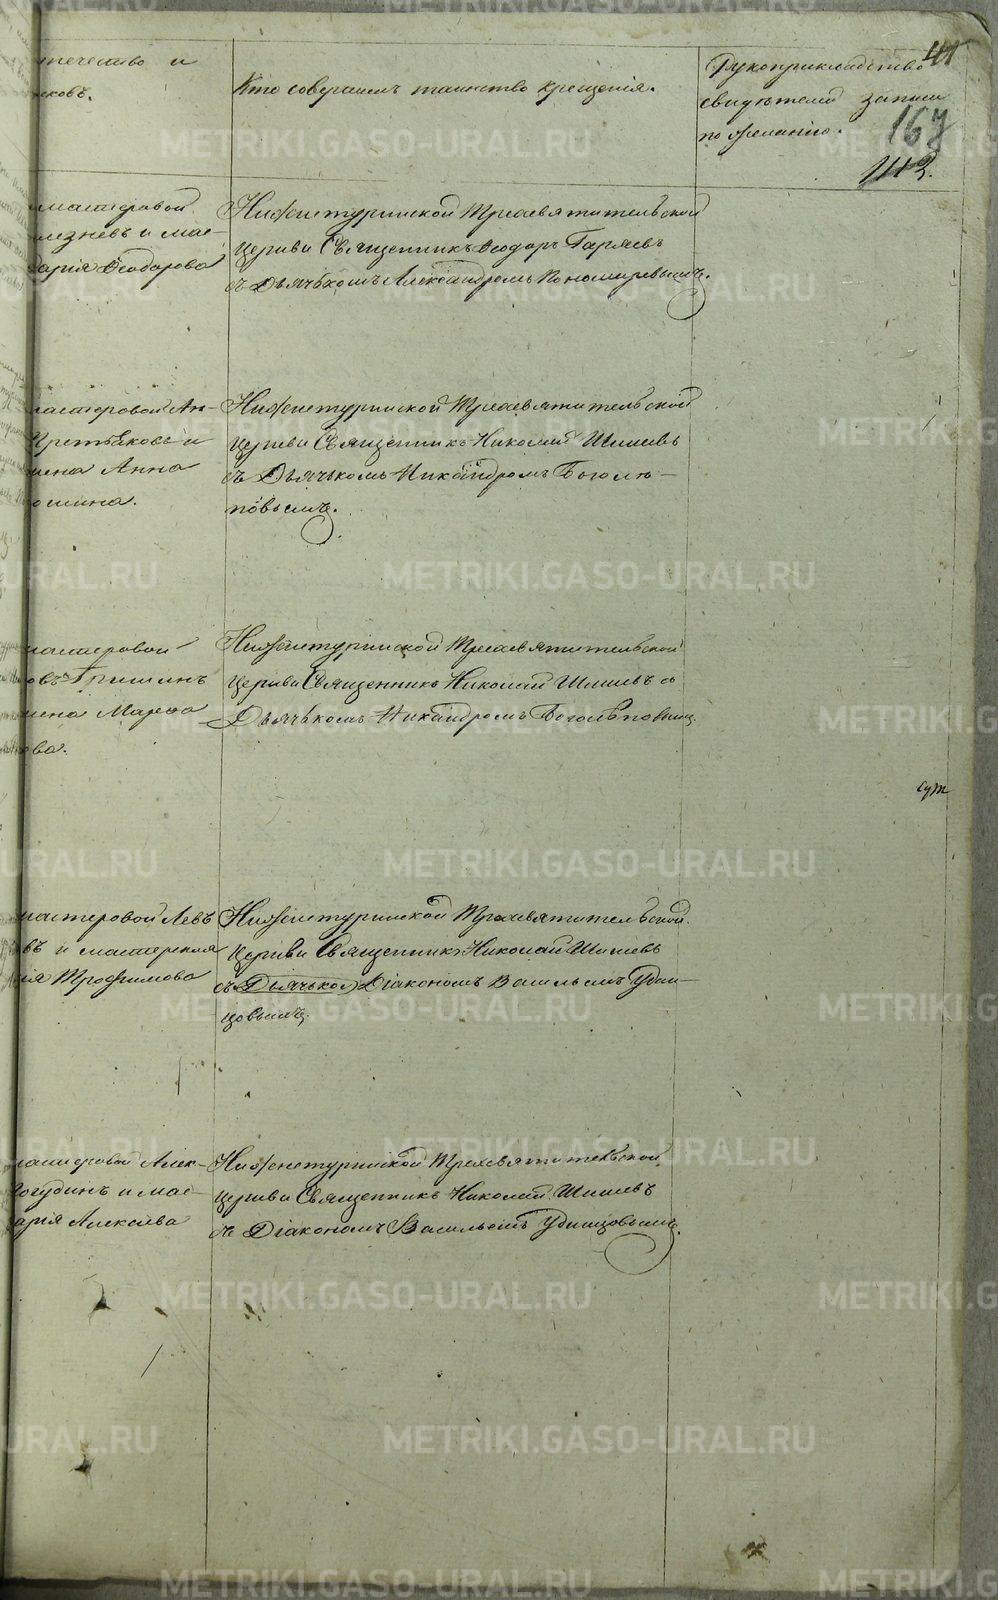 41
167
113.
течество и
ковъ.
Кто совершалъ таинство крещенія.
Рукоприкладство
свидѣтелей записи
по желанію.
мастеровой
лезневъ и мас-
дарія Ѳеодорова
Нижнетуринской Трехсвятительской
Церкви Священникъ Ѳеодоръ Гаряевъ
съ Дьячькомъ Александромъ Пономаревымъ.
мастеровой Ан-
Третьяковъ и
жена Анна
шина.
Нижнетуринской Трехсвятительской
Церкви Священникъ Николай Шишевъ
съ Дьячькомъ Никандромъ Боголѣ-
повымъ.
мастеровой
овъ Гришинъ
жена Марѳа
ова.
Нижнетуринской Трехсвятительской
Церкви Священникъ Николай Шишевъ съ
Дьячькомъ Никандромъ Боголѣповымъ
мастеровой Левъ
въ и мастерская
ія Трофимова
Нижнетуринской Трехсвятительской
Церкви Священникъ Николай Шишевъ
съ Дьячько Діакономъ Васильемъ Удин-
цовымъ.
мастеровой Алек-
огудинъ и мас-
арія Алексѣева
Нижнетуринской Трехсвятительской
Церкви Священникъ Николай Шишевъ
съ Діакономъ Васильемъ Удинцовымъ.
METRIKI.GASO-URAL.RU